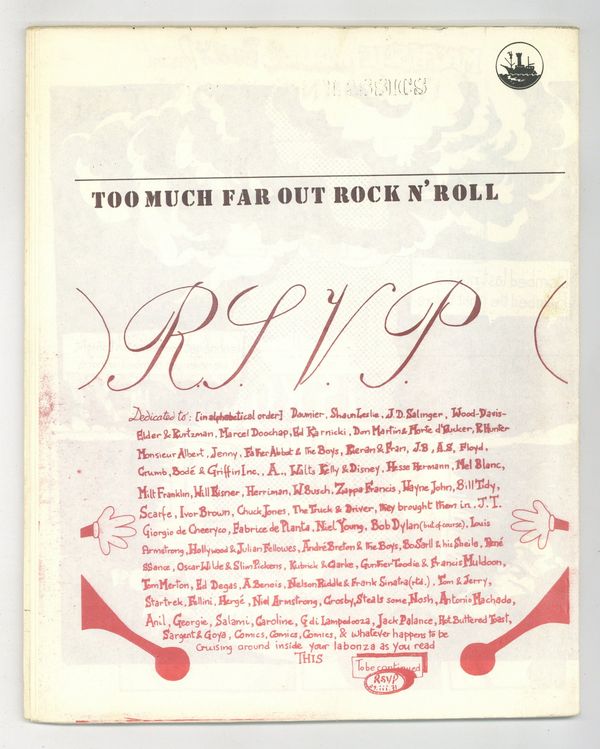 TOO MUCH FAR OUT ROCK N' ROLL
R.S.V.P
Dedicated to: [in alphabetical order] Daumier, Shaun Leslie, J.D. Salinger, Wood-Davis-
Elder & Kurtzman, Marcel Doochap, Ed Karnicki, Don Martin & Morte d'Vucker, R. Hunter
Monsieur Albert, Jenny, Father Abbot & The Boys, Kieran & Fran, J.B, A.S, Floyd,
Crumb, Bodé & Griffin Inc., A., Walts Kelly & Disney, Hesse Hermann, Mel Blanc,
Milt Franklin, Will Eisner, Herriman, W. Busch, Zappa Francis, Wayne John, Bill Tidy,
Scarfe, Ivor Brown, Chuck Jones, The Truck & Driver, they brought them in, J.T.
Giorgio de Cheeryco, Fabrice de Planta, Niel Young, Bob Dylan (but of course), Louis
Armstrong, Hollywood & Julian Fellowes, André Breton & the Boys, Bo Saril & his Sheila, René
ssance, Oscar Wilde & Slim Pickens, Kubrick & Clarke, Gunther Toodie & Francis Muldoon,
Tom Merton, Ed Degas, A. Benois, Nelson Riddle & Frank Sinatra (rtd.), Tom & Jerry,
Startrek, Fellini, Hergé, Niel Armstrong, Crosby, Steals some Nosh, Antonio Machado,
Anil, Georgie, Salami, Caroline, G di Lampedooza, Jack Palance, Hot Buttered Toast,
Sargent & Goya, Comics, Comics, Comics, & whatever happens to be
cruising around inside your labonza as you read
THIS
To be continued
RSVP